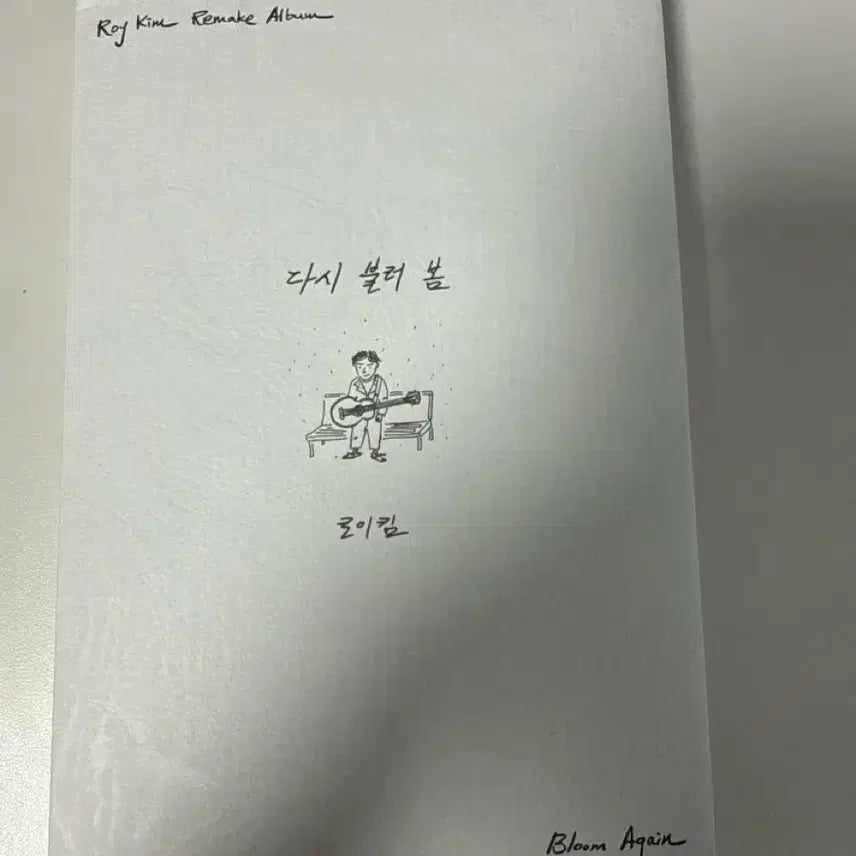 Roy Kim Remake Album
다시 불러 봄
로이킴
Bloom Again